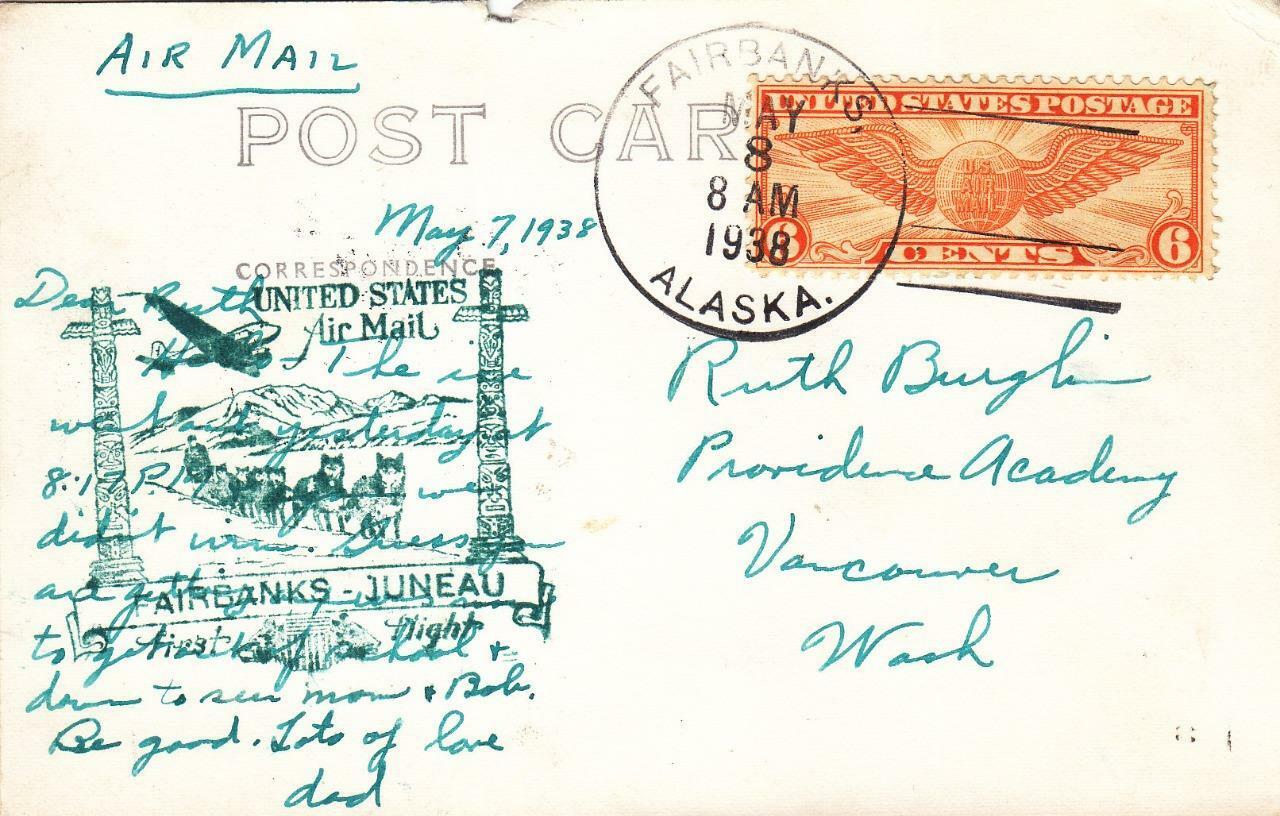 AIR MAIL
POST CAR
FAIRBANKS,
MAY
8
8 AM
1938
ALASKA.
UNITED STATES POSTAGE
U.S.
AIR
MAIL
6 CENTS 6
May 7, 1938
CORRESPONDENCE
UNITED STATES
Air Mail
FAIRBANKS - JUNEAU
First Flight
Dear Ruth
Hello - The ice
went out yesterday at
8:17 P.M. we
didn't win. Guess you
are
to get out of school &
down to see mom & Bob.
Be good. Lots of love
dad
Ruth Burglin
Providence Academy
Vancouver
Wash